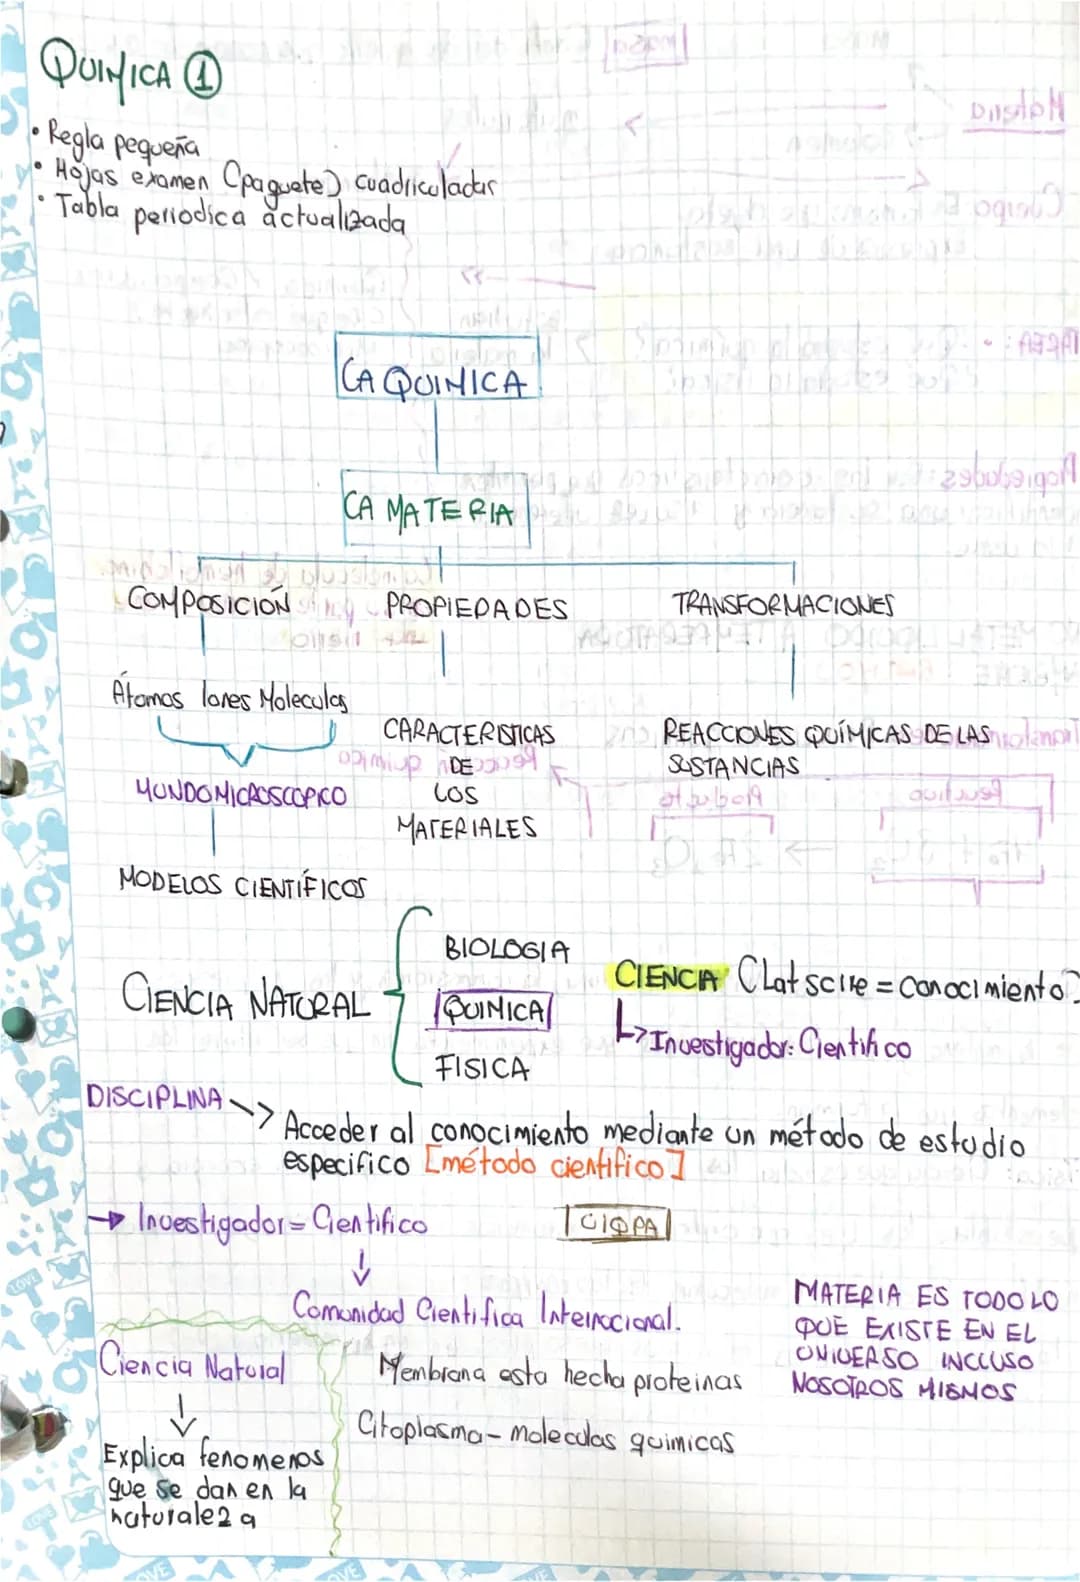 QUIMICA ①
• Regla pequeña
• Hojas examen (paquete) cuadriculadas
• Tabla periodica actualizada
LA QUIMICA
LA MATERIA
COMPOSICIÓN PROPIEDADES TRANSFORMACIONES
Átomos Iones Moleculas
CARACTERISTICAS
DE
LOS
MATERIALES
REACCIONES QUÍMICAS DE LAS
SUSTANCIAS
MUNDO MICROSCOPICO
MODELOS CIENTÍFICOS
CIENCIA NATURAL
BIOLOGIA
QUIMICA
FISICA
CIENCIA (Lat scire = conocimiento)
Investigador: Cientifico
DISCIPLINA
Acceder al conocimiento mediante un método de estudio
especifico [método cientifico]
→ Investigador = Cientifico
CIQPA
Comunidad Cientifica Internacional.
MATERIA ES TODO LO
QUE EXISTE EN EL
UNIVERSO INCLUSO
NOSOTROS MISMOS
Ciencia Natural
Explica fenomenos
que se dan en la
naturaleza
Membrana esta hecha proteinas
Citoplasma - moleculas quimicas